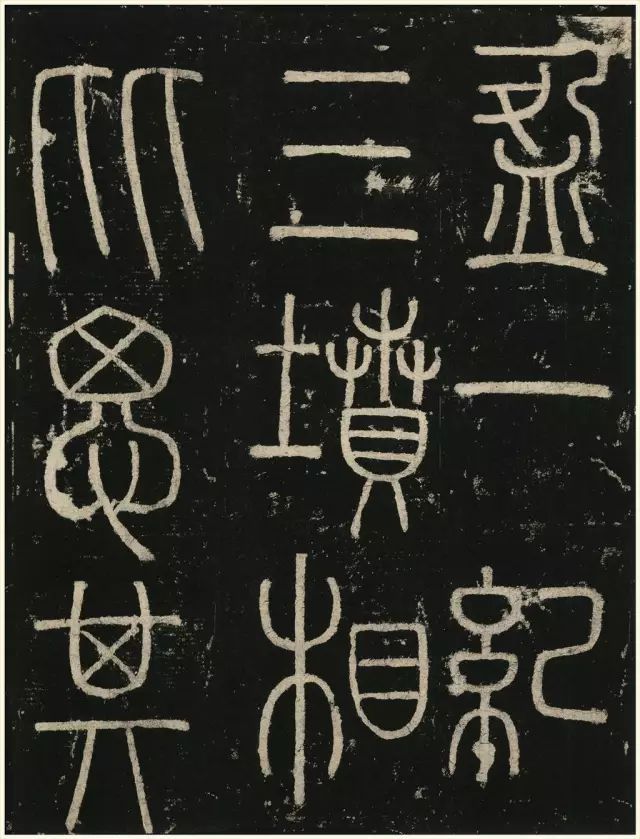 盈一紀
三墳相
比思其